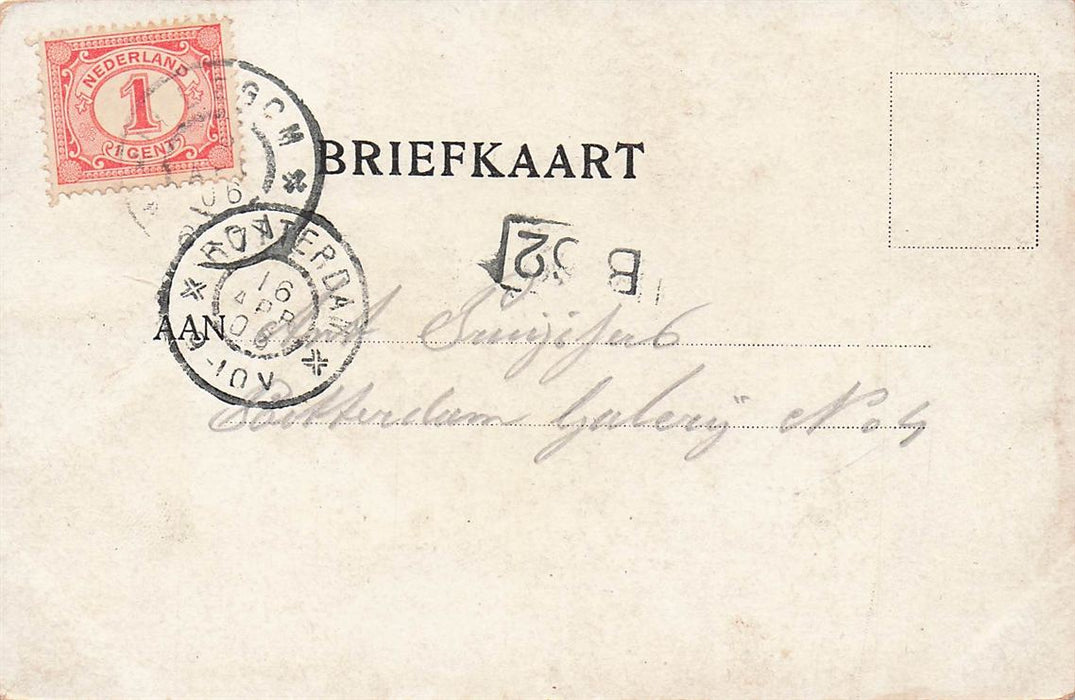 NEDERLAND
1
1 CENT
06
BRIEFKAART
B
52
ROTTERDAM
16
APR
06
8-10V
AAN
Rotterdam Galerij No 4